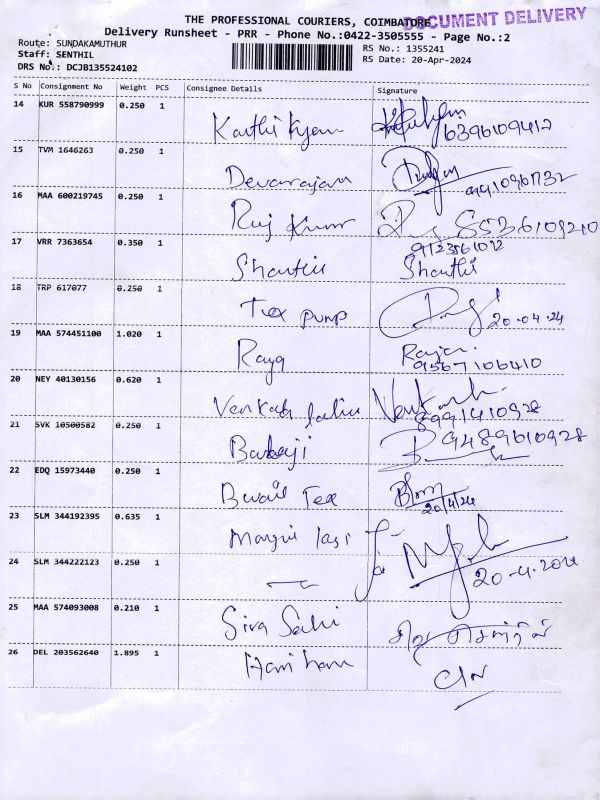 THE PROFESSIONAL COURIERS, COIMBATORE
DOCUMENT DELIVERY
Delivery Runsheet - PRR - Phone No.:0422-3505555 - Page No.:2
Route: SUNDAKAMUTHUR
RS No.: 1355241
Staff: SENTHIL
RS Date: 20-Apr-2024
DRS No.: DCJB135524102
S No Consignment No Weight PCS Consignee Details Signature
14 KUR 558790999 0.250 1
6396109412
15 TVM 1646263 0.250 1 Devarajan
16 MAA 600219745 0.250 1 Raj Kumar
9123561092
17 VRR 7363654 0.350 1 Shanthi Shanthi
18 TRP 617077 0.250 1 Tex pump
20.04.24
19 MAA 574451100 1.020 1 Raja Raja
9567106410
20 NEY 40130156 0.620 1 Venkat
8991410928
21 SVK 10500582 0.250 1 Balaji 9489610928
22 EDQ 15973440 0.250 1 Tex
20/4/24
23 SLM 344192395 0.635 1
24 SLM 344222123 0.250 1
20.4.2024
25 MAA 574093008 0.210 1 Siva Sakthi
26 DEL 203562640 1.895 1 Hari haran